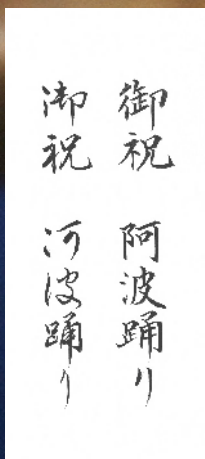 御祝　阿波踊り
御祝　阿波踊り